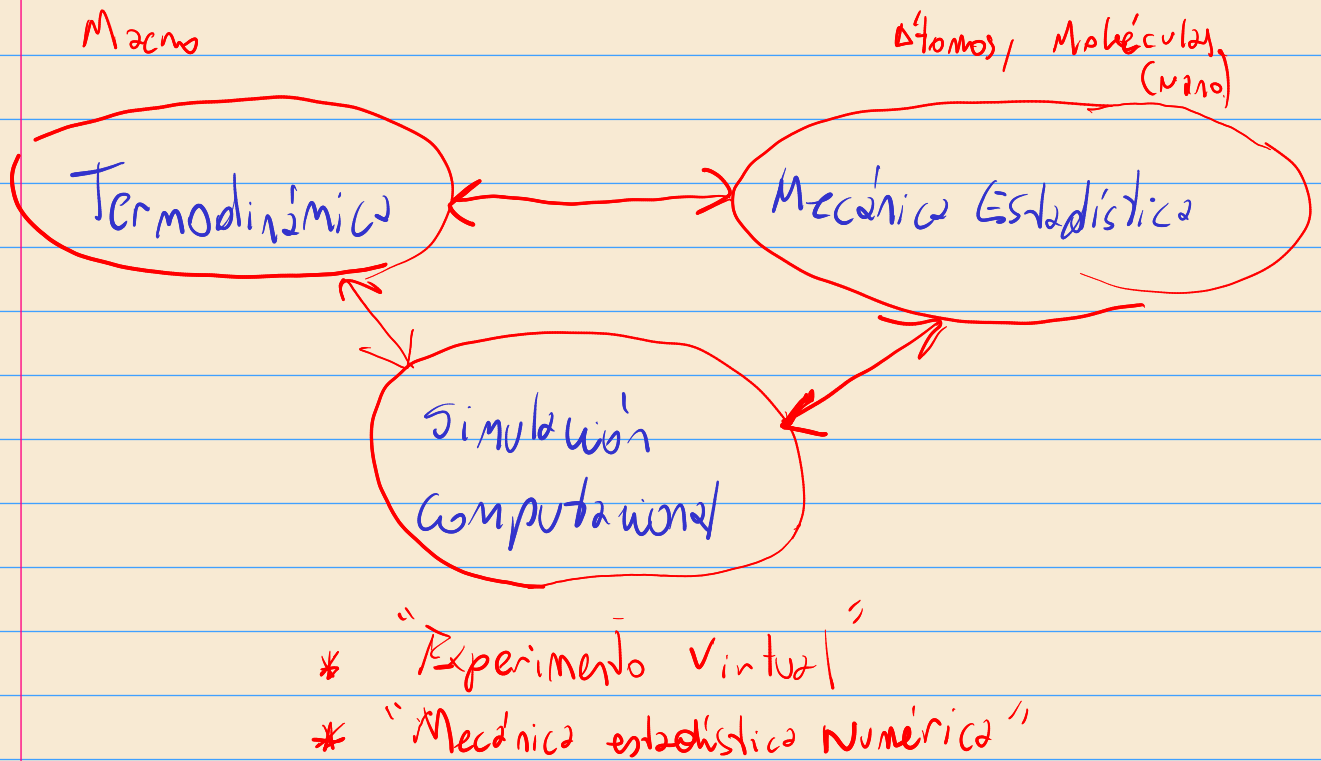 Macro
Átomos, Moléculas,
(Nano)
Termodinámica
Mecánica Estadística
Simulación
Computacional
* "Experimento Virtual"
* "Mecánica estadística Numérica"